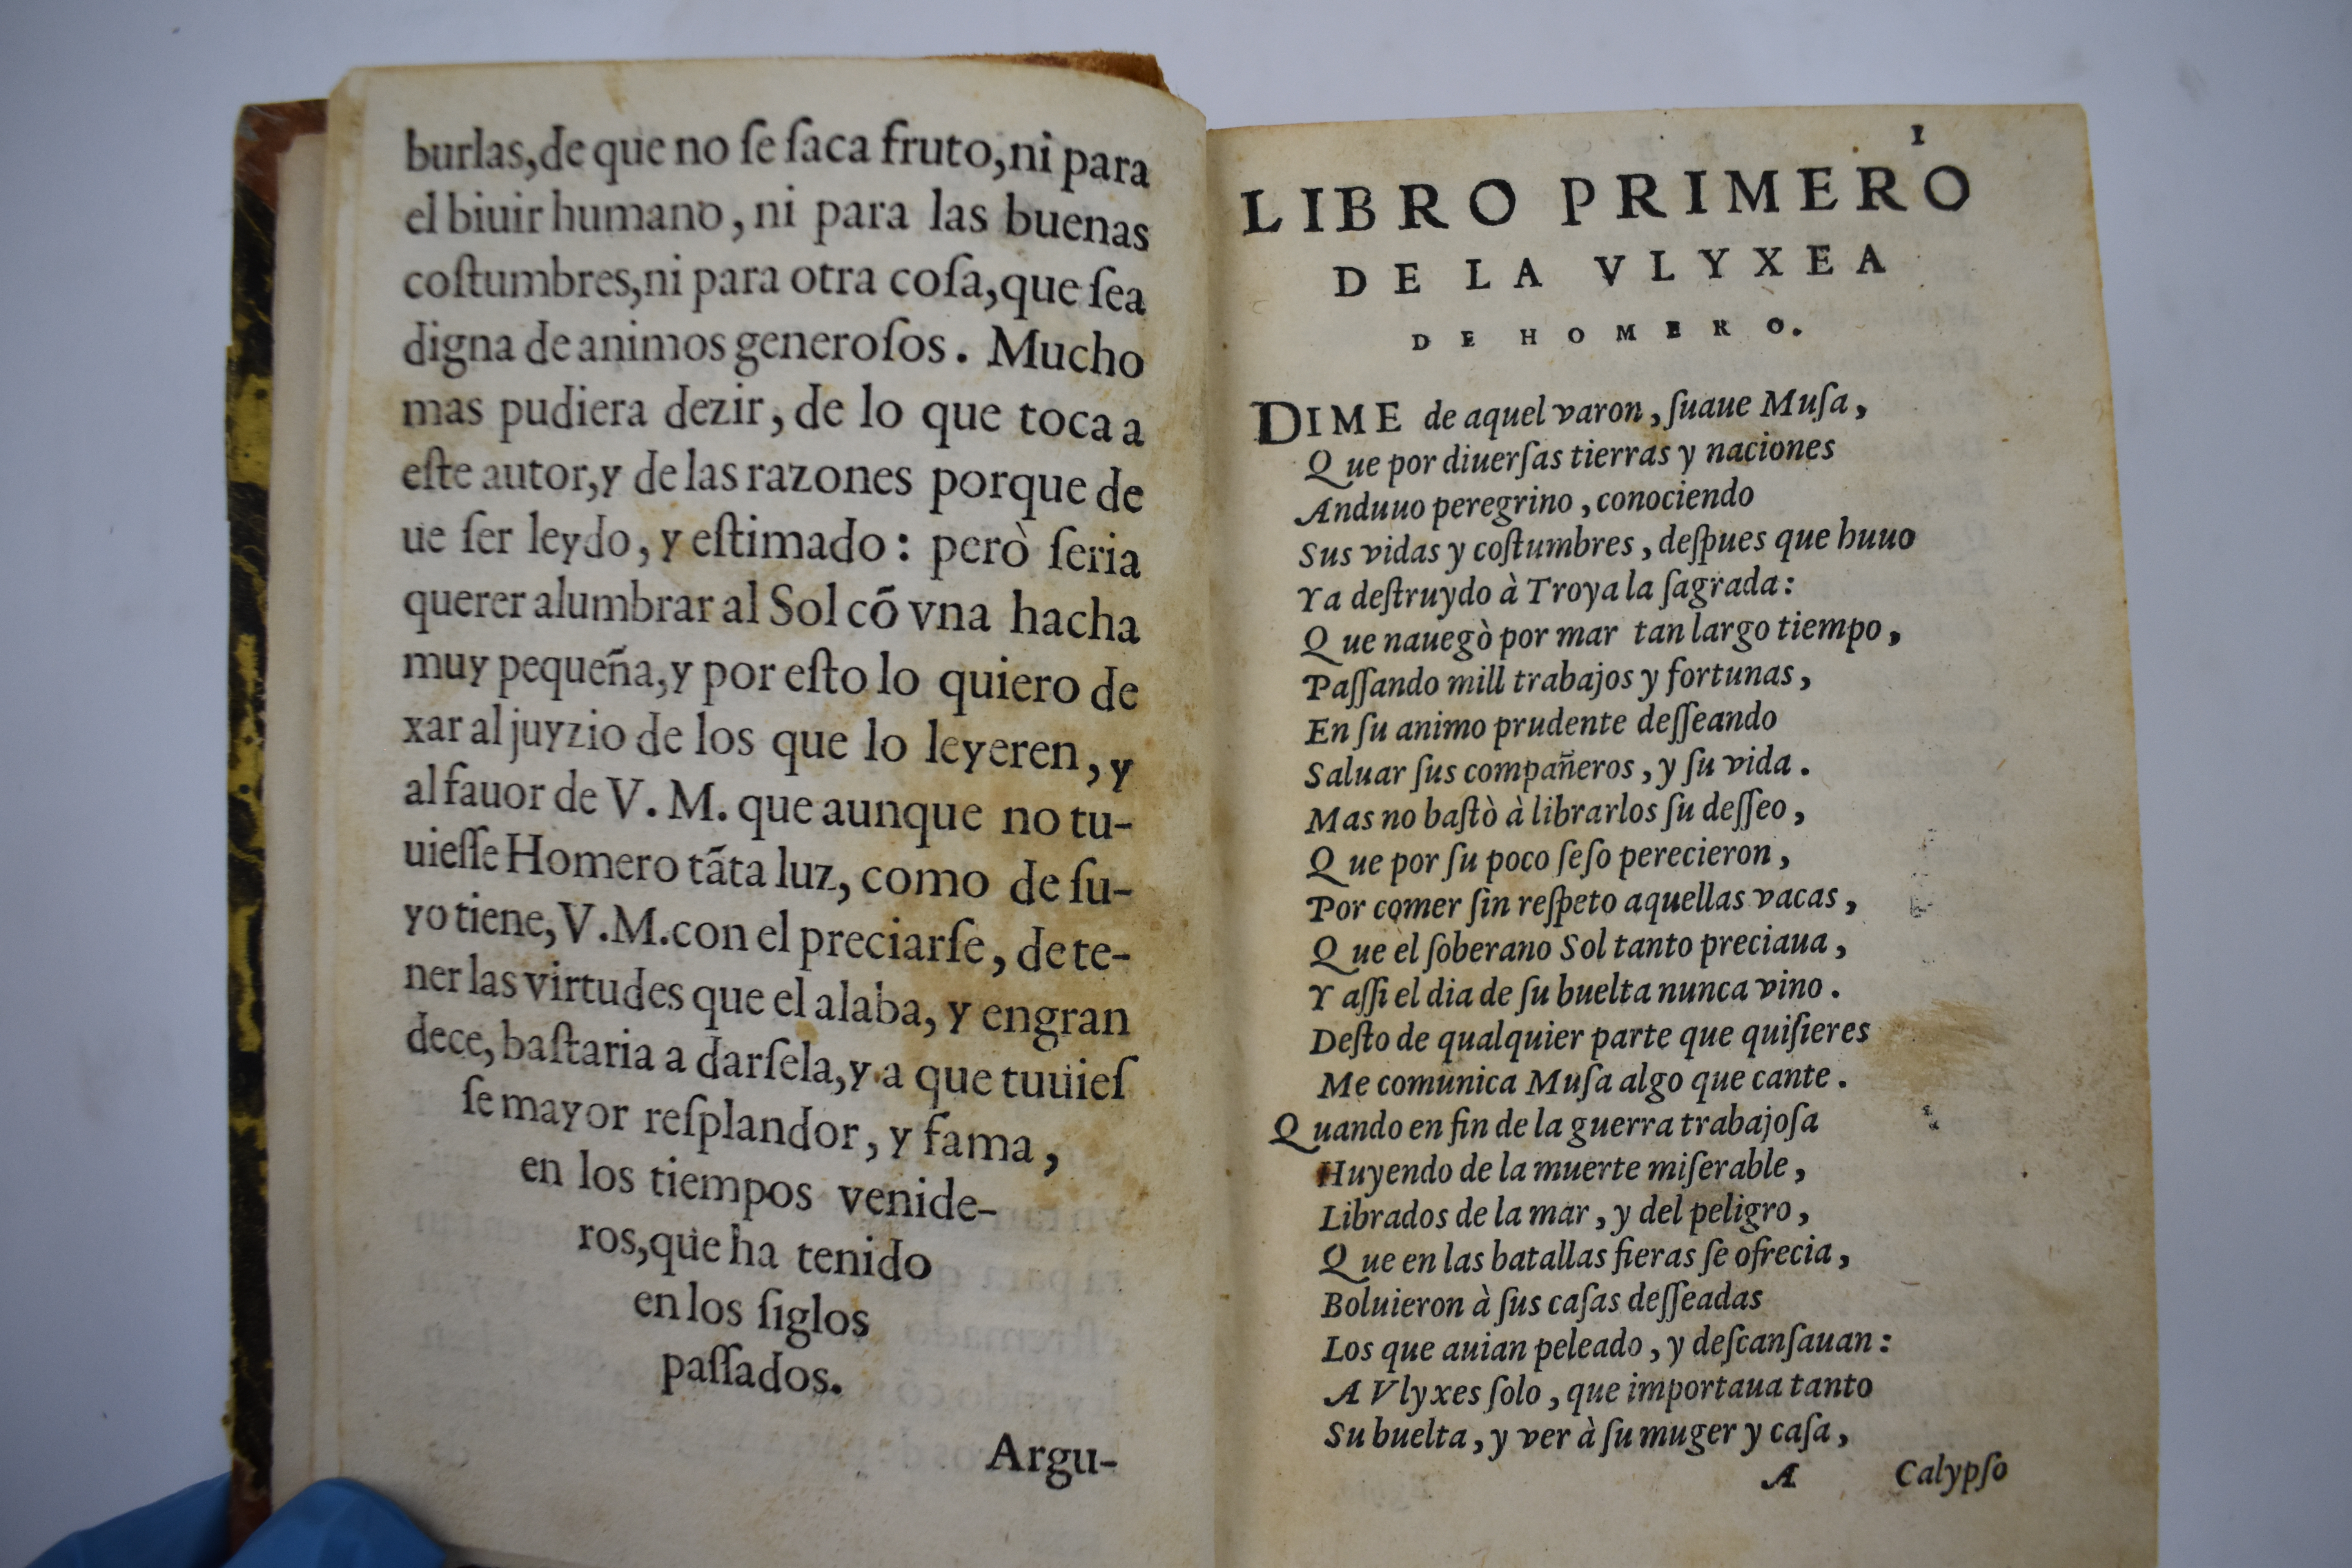 burlas, de que no ſe ſaca fruto, ni para
el biuir humano, ni para las buenas
coſtumbres, ni para otra coſa, que ſea
digna de animos generoſos. Mucho
mas pudiera dezir, de lo que toca a
eſte autor, y de las razones porque de
ue ſer leydo, y eſtimado: però ſeria
querer alumbrar al Sol cõ vna hacha
muy pequeña, y por eſto lo quiero de
xar al juyzio de los que lo leyeren, y
al fauor de V. M. que aunque no tu-
uieſſe Homero tãta luz, como de ſu-
yo tiene, V. M. con el preciarſe, de te-
ner las virtudes que el alaba, y engran
dece, baſtaria a darſela, y a que tuuieſ
ſe mayor reſplandor, y fama,
en los tiempos venide-
ros, que ha tenido
en los ſiglos
paſſados.
Argu-
1
LIBRO PRIMERO
DE LA VLYXEA
DE HOMERO.
DIME de aquel varon, ſuaue Muſa,
Que por diuerſas tierras y naciones
Anduuo peregrino, conociendo
Sus vidas y coſtumbres, deſpues que huuo
Ya deſtruydo à Troya la ſagrada:
Que nauegò por mar tan largo tiempo,
Paſſando mill trabajos y fortunas,
En ſu animo prudente deſſeando
Saluar ſus compañeros, y ſu vida.
Mas no baſtò à librarlos ſu deſſeo,
Que por ſu poco ſeſo perecieron,
Por comer ſin reſpeto aquellas vacas,
Que el ſoberano Sol tanto preciaua,
Y aſſi el dia de ſu buelta nunca vino.
Deſto de qualquier parte que quiſieres
Me comunica Muſa algo que cante.
Quando en fin de la guerra trabajoſa
Huyendo de la muerte miſerable,
Librados de la mar, y del peligro,
Que en las batallas fieras ſe ofrecia,
Boluieron à ſus caſas deſſeadas
Los que auian peleado, y deſcanſauan:
A Vlyxes ſolo, que importaua tanto
Su buelta, y ver à ſu muger y caſa,
A Calypſo